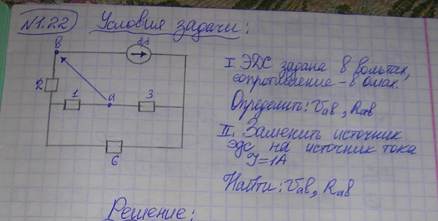 N1.22 Условия задачи:
В
2
1
а
3
6
I ЭДС задана в вольтах,
сопротивление - в омах.
Определить: Uав, Rав
II. Заменить источник
эдс на источник тока
J=1А
Найти: Uав, Rав
Решение: